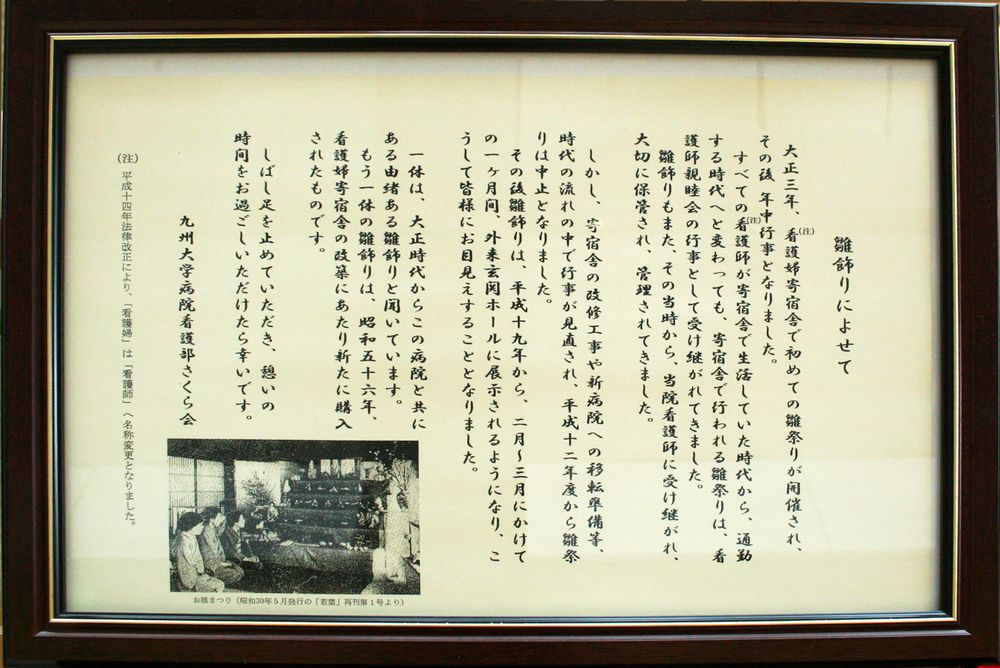 雛飾りによせて
大正三年、看護婦(注)寄宿舎で初めての雛祭りが開催され、
その後、年中行事となりました。
すべての看護師(注)が寄宿舎で生活していた時代から、通勤
する時代へと変わっても、寄宿舎で行われる雛祭りは、看
護師親睦会の行事として受け継がれてきました。
雛飾りもまた、その当時から、当院看護師に受け継がれ、
大切に保管され、管理されてきました。
しかし、寄宿舎の改修工事や新病院への移転準備等、
時代の流れの中で行事が見直され、平成十二年度から雛祭
りは中止となりました。
その後雛飾りは、平成十九年から、二月～三月にかけて
の一ヶ月間、外来玄関ホールに展示されるようになり、こ
うして皆様にお目見えすることとなりました。
一体は、大正時代からこの病院と共に
ある由緒ある雛飾りと聞いています。
もう一体の雛飾りは、昭和五十六年、
看護婦寄宿舎の改築にあたり新たに購入
されたものです。
しばし足を止めていただき、憩いの
時間をお過ごしいただけたら幸いです。
九州大学病院看護部さくら会
(注) 平成十四年法律改正により、「看護婦」は「看護師」へ名称変更となりました。
お雛まつり(昭和30年5月発行の「若葉」再刊第1号より)